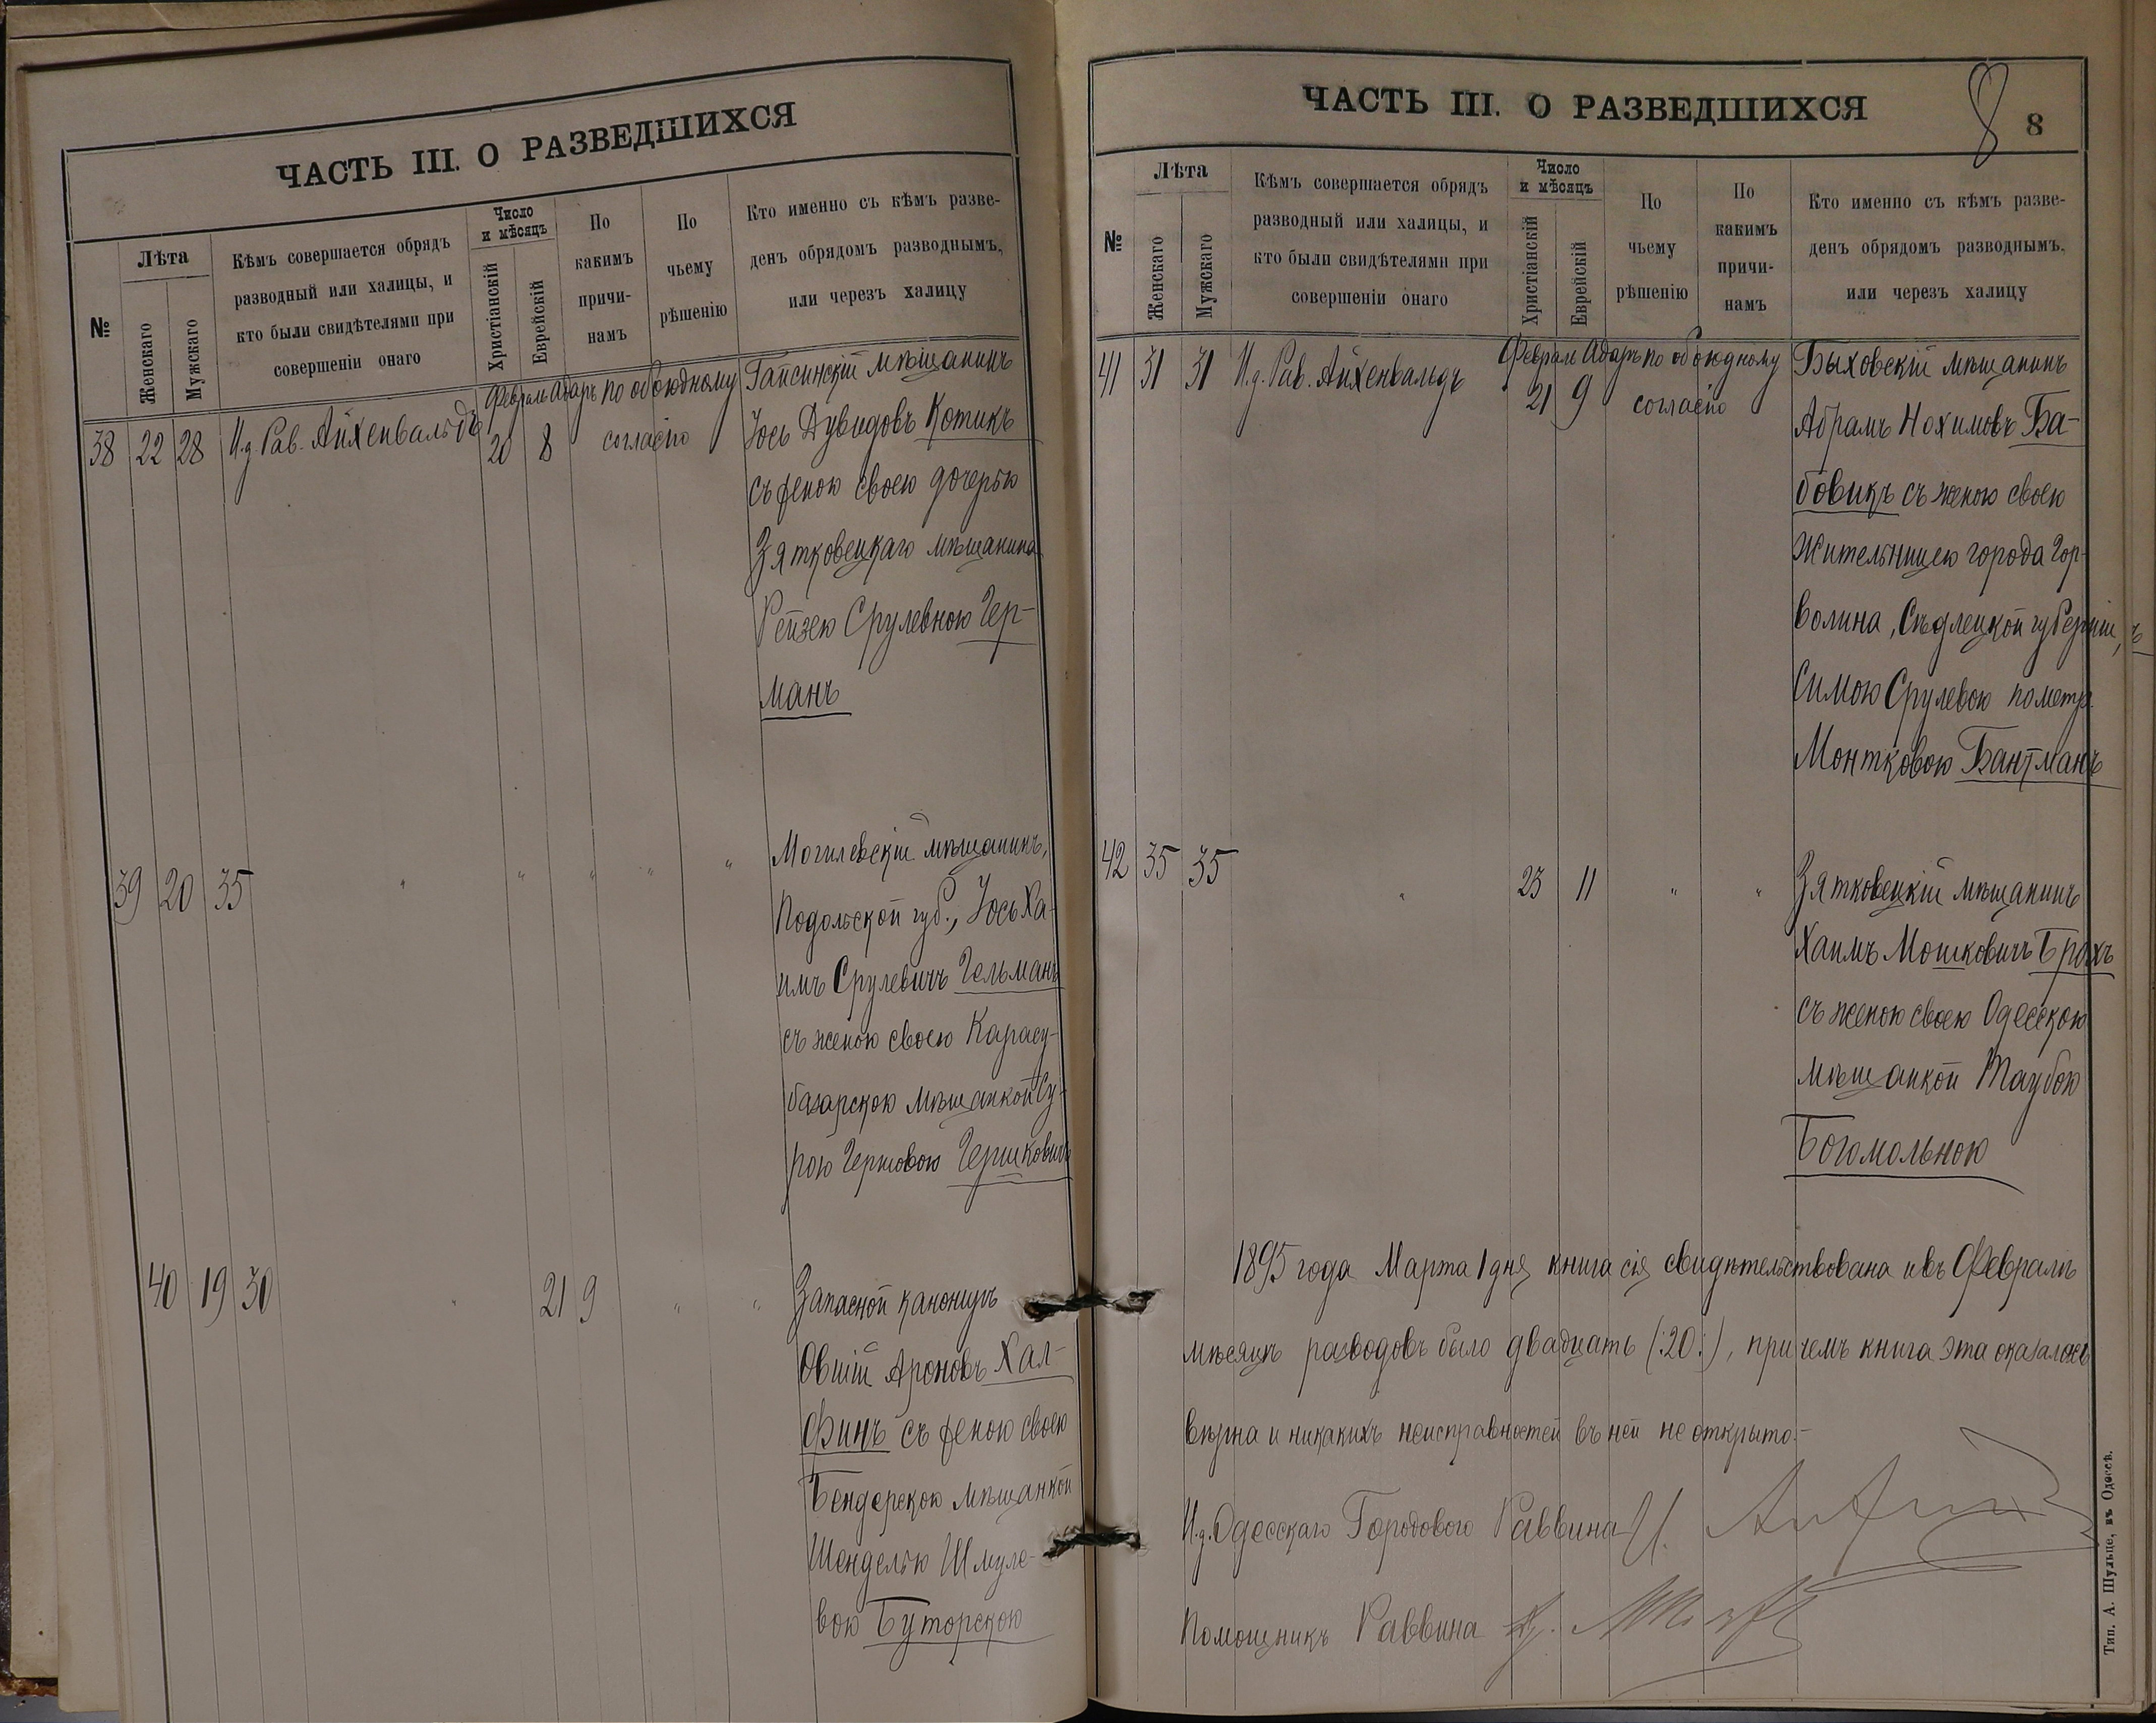 ЧАСТЬ III. О РАЗВЕДШИХСЯ
№
Лѣта
Женскаго
Мужскаго
Кѣмъ совершается обрядъ
разводный или халицы, и
кто были свидѣтелями при
совершеніи онаго
Число
и мѣсяцъ
Христіанскій
Еврейскій
По
какимъ
причи-
намъ
По
чьему
рѣшенію
Кто именно съ кѣмъ разве-
денъ обрядомъ разводнымъ,
или черезъ халицу
38 22 28 И.д. Рав. Айхенвальдъ
Февраль Адаръ по обоюдному
20 8 согласію
Гайсинскій мѣщанинъ
Іось Дувидовъ Котикъ
съ женою своею дочерью
Зятковецкаго мѣщанина
Рейзею Срулевною Гер-
манъ
39 20 35 " " " " "
Могилевскій мѣщанинъ,
Подольской губ., Іось Ха-
имъ Срулевичъ Гельманъ
съ женою своею Карасу-
базарскою мѣщанкой Су-
рою Гершовою Гершковичъ
40 19 30 " 21 9 " "
Запасной канониръ
Овшій Ароновъ Хал-
финъ съ женою своею
Бендерскою мѣщанкой
Шенделью Шмуле-
вою Буторскою
ЧАСТЬ III. О РАЗВЕДШИХСЯ
8
8
№
Лѣта
Женскаго
Мужскаго
Кѣмъ совершается обрядъ
разводный или халицы, и
кто были свидѣтелями при
совершеніи онаго
Число
и мѣсяцъ
Христіанскій
Еврейскій
По
чьему
рѣшенію
По
какимъ
причи-
намъ
Кто именно съ кѣмъ разве-
денъ обрядомъ разводнымъ,
или черезъ халицу
41 31 31 И.д. Рав. Айхенвальдъ
Февраль Адаръ по обоюдному
21 9 согласію
Быховскій мѣщанинъ
Абрамъ Нохимовъ Ба-
бовикъ съ женою своею
жительницею города Гор-
волина, Сѣдлецкой губерніи,
Симою Срулевою по метр.
Монтковою Бантманъ
42 35 35 " 23 11 " "
Зятковецкій мѣщанинъ
Хаимъ Мошковичъ Брохъ
съ женою своею Одесскою
мѣщанкой Таубою
Богомольною
1895 года Марта 1 дня книга сія свидѣтельствована и въ Февралѣ
мѣсяцѣ разводовъ было двадцать (:20:), при чемъ книга эта оказалась
вѣрна и никакихъ неисправностей въ ней не открыто.-
И.д. Одесскаго Городового Раввина
Помощникъ Раввина
Тип. А. Шульце, въ Одессѣ.